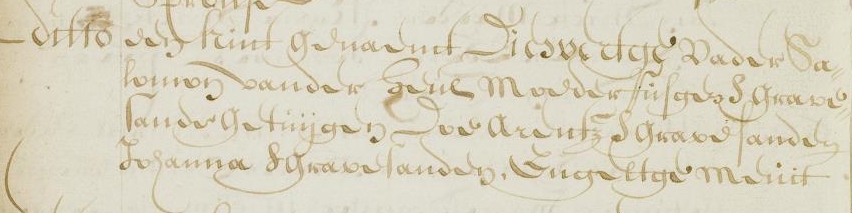 ditto een kint genaemt Dieuertge Vader Sa-
lomon vander heul Moeder Jufgen sGrave-
sande getuijgen Doe Arentsz sGravesanden
Johanna sGravesanden. Engeltge Meuit